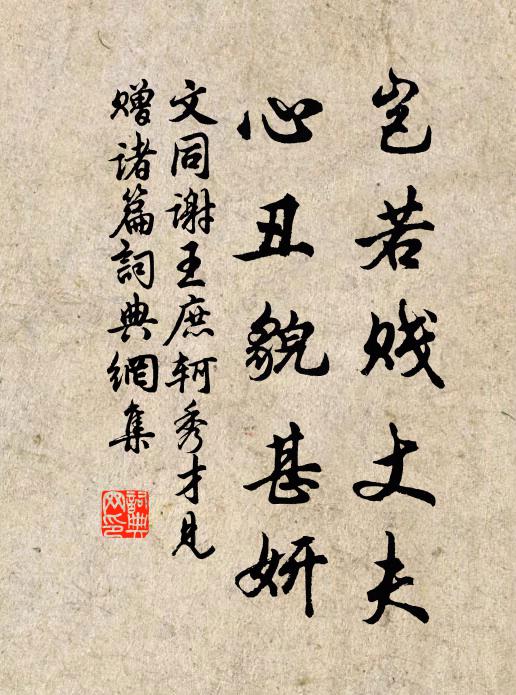 岂若贱丈夫
心丑貌甚妍
文同谢王庶轲秀才见
赠诸篇詞典網集
詞典
网印